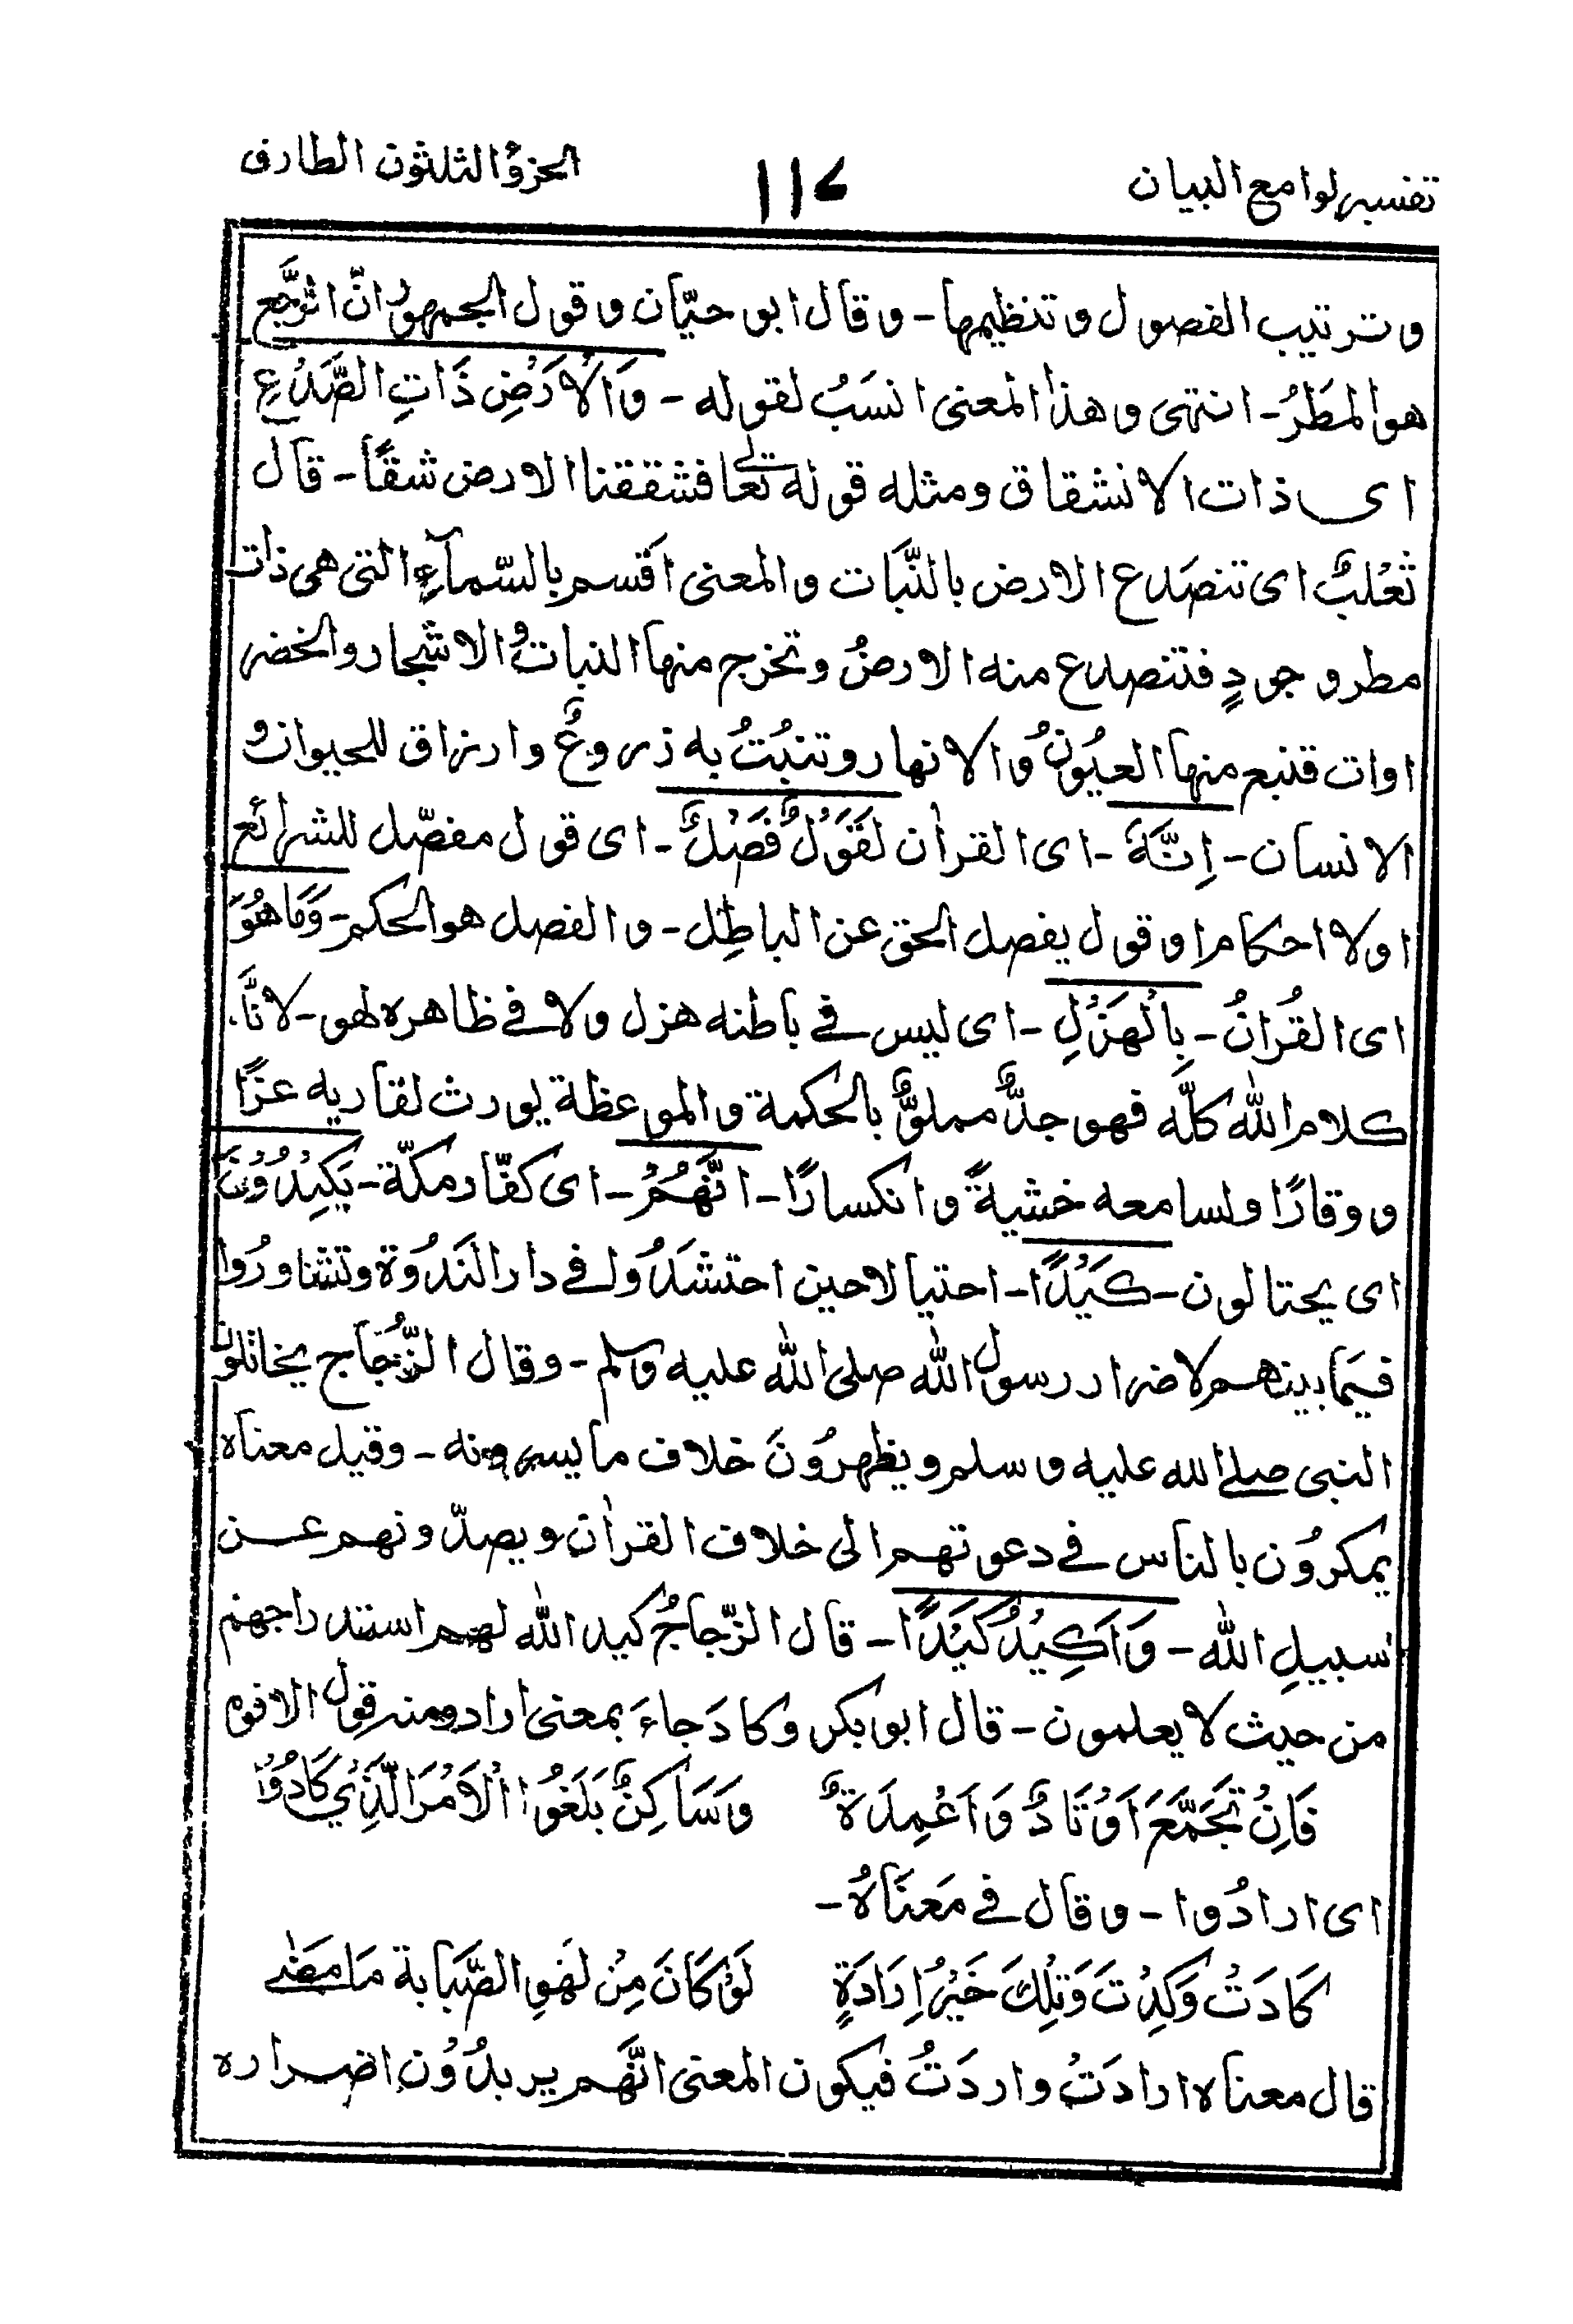 تفسير لوامع البيان
١١٤
الجزؤ الثلثون الطارق
و ترتيب الفصول و تنظيمها - و قال ابو حيّان و قول الجمهور انّ الرَّجع
هو المطَرُ - انتهى و هذا المعنى انسَبُ لقوله - وَالْاَرْضِ ذَاتِ الصَّدْعِ
اى ذات الانشقاق ومثله قوله تعالى فشققنا الارض شقًّا - قال
ثَعْلبٌ اى تنصَدع الارض بالنَّبَات و المعنى اقسم بالسّمآءِ التى هى ذات
مطر و جودٍ فتنصدع منه الارضُ و تخرج منها النبات و الاشجار و الخضر
اوات فتنبع منها العيُون وُ الانهار و تنبُتُ به زروعٌ و ارزاق للحيوان و
الانسان - اِنَّهٗ - اى القراٰن لَقَوْلٌ فَصْلٌ - اى قول مفصّل للشرائع
او لاحكام او قول يفصل الحق عن الباطِل - و الفصل هو الحكم - وَمَا هُوَ
اى القُراٰنُ - بِالْهَزْلِ - اى ليس فى باطنه هزل و لا فى ظاهره لهو - لانَّه
كلام الله كلّه فهو جدٌّ مملوٌّ بالحكمة و الموعظة يورث لقاريه عزًا
و وقارًا و لسامعه خشيةً و انكسارًا - انَّهُمْ - اى كفّار مكّة - يَكِيْدُوْنَ
اى يحتالون - كَيْدًا - احتيالا حين احتشدُوا فى دار النَدْوَة و تشاورُوا
فيمَا بينهم لاضرار رسول الله صلى الله عليه وسلم - و قال الزُّجَاج يخاتلون
النبى صلى الله عليه و سلم و يظهرُونَ خلاف ما يسرونه - وقيل معناه
يمكرُون بالناس فى دعوتهم الى خلاف القراٰن و يصدّونهم عن
سبيلِ الله - وَاَكِيْدُ كَيْدًا - قال الزّجاجُ كيد الله لهم استدراجهم
من حيث لا يعلمون - قال ابو بكر و كادَ جاءَ بمعنى اراد و منه قول الافوه
فَاِنْ تَجَمَّعَ اَوْتَادٌ وَ اَعْمِدَةٌ وَسَاكِنٌ بَلَغُوا الْاَمْرَ الَّذِيْ كَادُوْا
اى ارادُوا - و قال فى مَعنَاهُ -
كَادَتْ وَكِدْتَ وَتِلْكَ خَيْرُ اِرَادَةٍ لَوْ كَانَ مِنْ لَهْوِ الصَّبَابة مَا مَضٰى
قال معناه ارادَتْ و اردَتُ فيكون المعنى انَّهم يريدُوْن اضراره